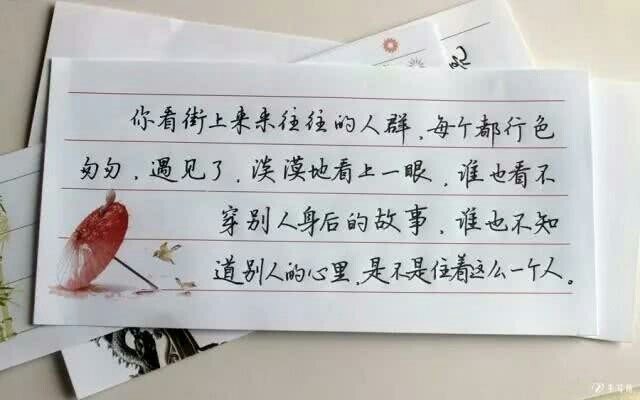 你看街上来来往往的人群，每个都行色
匆匆，遇见了，淡漠地看上一眼，谁也看不
穿别人身后的故事，谁也不知
道别人的心里，是不是住着这么一个人。